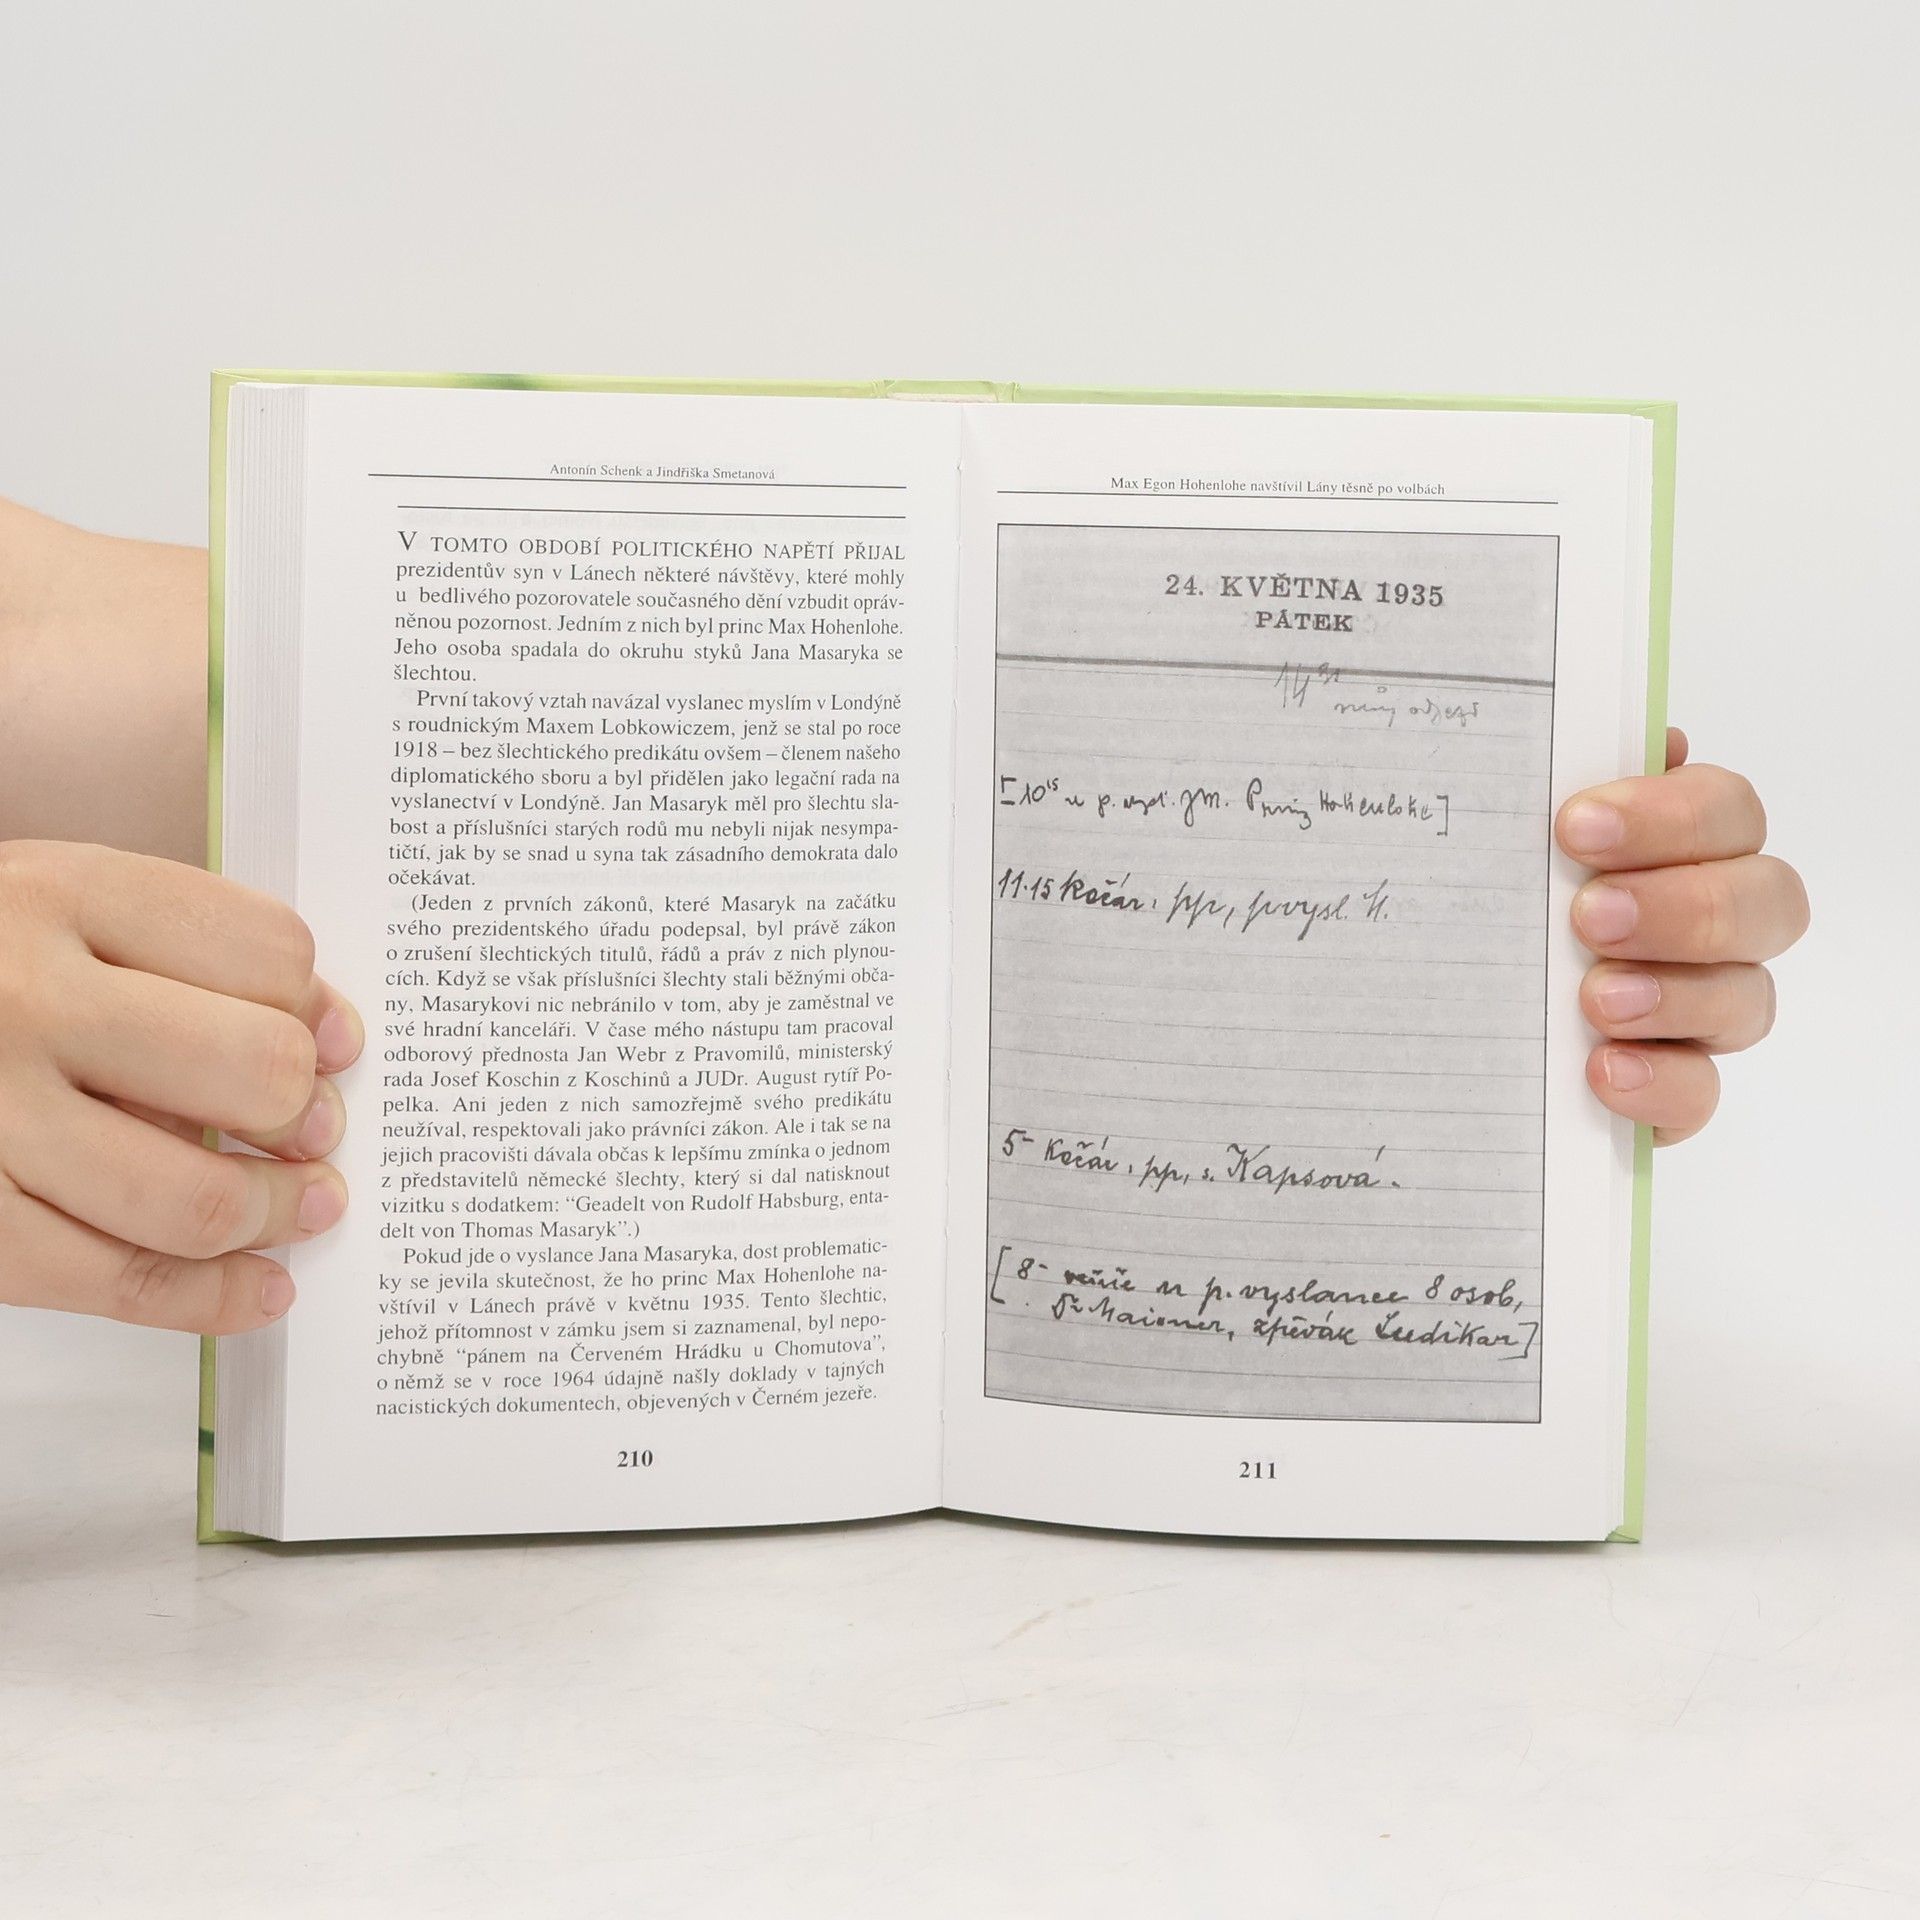 Antonín Schenk a Jindřiška Smetanová
V TOMTO OBDOBÍ POLITICKÉHO NAPĚTÍ PŘIJAL
prezidentův syn v Lánech některé návštěvy, které mohly
u bedlivého pozorovatele současného dění vzbudit opráv-
něnou pozornost. Jedním z nich byl princ Max Hohenlohe.
Jeho osoba spadala do okruhu styků Jana Masaryka se
šlechtou.
První takový vztah navázal vyslanec myslím v Londýně
s roudnickým Maxem Lobkowiczem, jenž se stal po roce
1918 – bez šlechtického predikátu ovšem – členem našeho
diplomatického sboru a byl přidělen jako legační rada na
vyslanectví v Londýně. Jan Masaryk měl pro šlechtu sla-
bost a příslušníci starých rodů mu nebyli nijak nesympa-
tičtí, jak by se snad u syna tak zásadního demokrata dalo
očekávat.
(Jeden z prvních zákonů, které Masaryk na začátku
svého prezidentského úřadu podepsal, byl právě zákon
o zrušení šlechtických titulů, řádů a práv z nich plynou-
cích. Když se však příslušníci šlechty stali běžnými obča-
ny, Masarykovi nic nebránilo v tom, aby je zaměstnal ve
své hradní kanceláři. V čase mého nástupu tam pracoval
odborový přednosta Jan Webr z Pravomilů, ministerský
rada Josef Koschin z Koschinů a JUDr. August rytíř Po-
pelka. Ani jeden z nich samozřejmě svého predikátu
neužíval, respektovali jako právníci zákon. Ale i tak se na
jejich pracovišti dávala občas k lepšímu zmínka o jednom
z představitelů německé šlechty, který si dal natisknout
vizitku s dodatkem: “Geadelt von Rudolf Habsburg, enta-
delt von Thomas Masaryk”.)
Pokud jde o vyslance Jana Masaryka, dost problematic-
ky se jevila skutečnost, že ho princ Max Hohenlohe na-
vštívil v Lánech právě v květnu 1935. Tento šlechtic,
jehož přítomnost v zámku jsem si zaznamenal, byl nepo-
chybně “pánem na Červeném Hrádku u Chomutova”,
o němž se v roce 1964 údajně našly doklady v tajných
nacistických dokumentech, objevených v Černém jezeře.
210
Max Egon Hohenlohe navštívil Lány těsně po volbách
24. KVĚTNA 1935
PÁTEK
můj odjezd
[10¹⁵ u p. vysl. JM. Prinz Hohenlohe]
11.15 Kočár, pp, pvysl. H.
5- Kočár, pp, s. Kapsová.
[8- večeře u p. vyslance 8 osob,
Dr Maixner, zpěvák Ludikar]
211